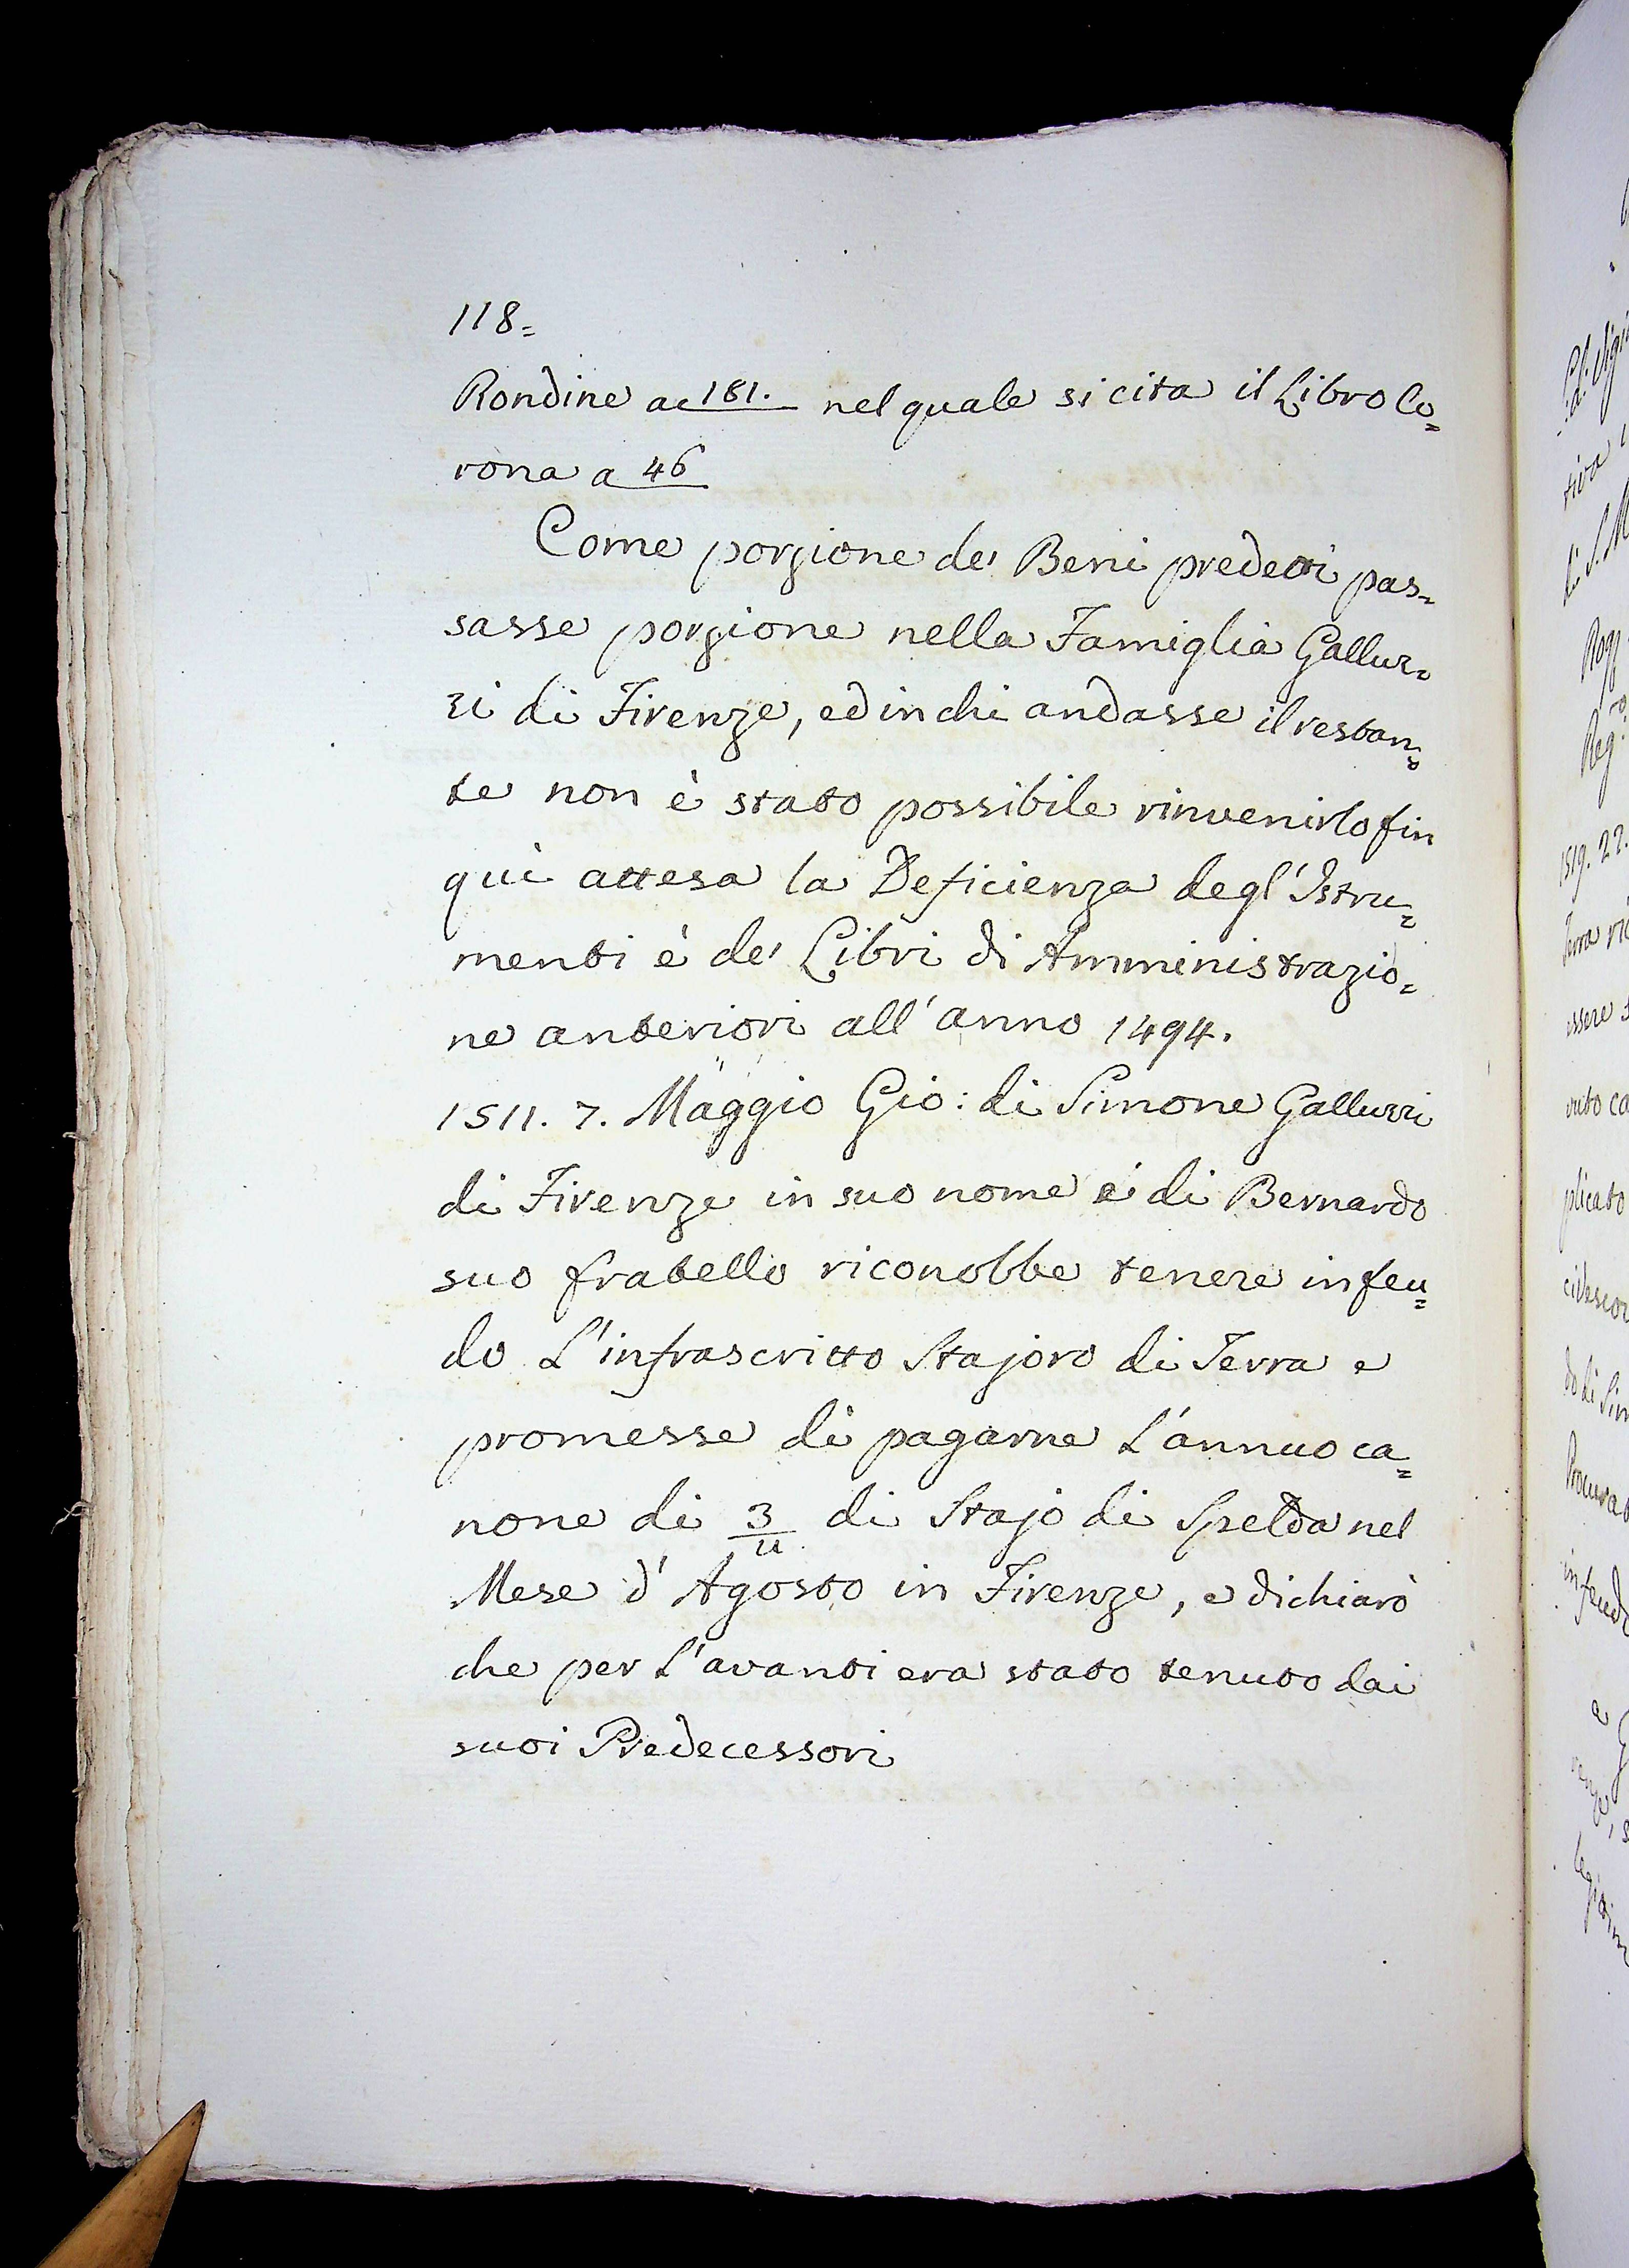 118=
Rondine ac 181. nel quale si cita il Libro Co=
rona a 46
Come porzione de' Beni predetti pas=
sasse porzione nella Famiglia Galluz=
zi di Firenze, ed in chi andasse il restan=
te non è stato possibile rinvenirlo fin
qui attesa la Deficienza degl'Istru=
menti è de' Libri di Amministrazio=
ne anteriori all'anno 1494.
1511. 7. Maggio Gio: di Simone Galluzzi
di Firenze in suo nome è di Bernardo
suo fratello riconobbe tenere in feu=
do L'infrascritto Stajoro di Terra e
promesse di pagarne L'annuo ca=
none di 3/u di Stajo di Spelda nel
Mese d'Agosto in Firenze, e dichiarò
che per L'avanti era stato tenuto dai
suoi Predecessori
1519. 22.